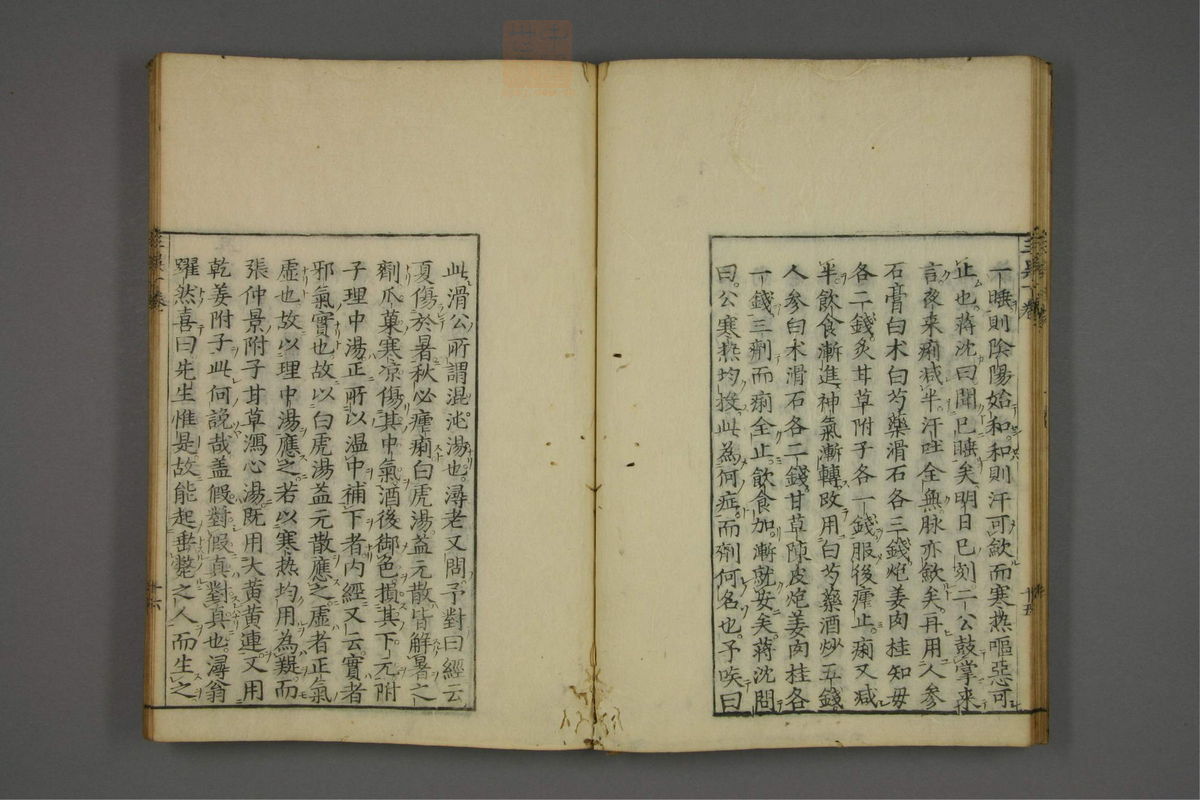 一睡則陰陽始和。和則汗可斂而寒熱嘔惡可
止也。蔣沈曰聞已睡矣明日巳刻。二公鼓掌来
言。夜来痢减半。汗吐全無脉亦歛矣。再用人参
石膏白朮白芍藥滑石各三錢炮姜肉桂知母
各二錢。炙甘草附子各一錢服後瘧止。痢又减
半。飲食漸進。神氣漸轉改用白芍藥酒炒五錢
人参白朮滑石各二錢。甘草陳皮炮姜肉桂各
一錢三劑而痢全止。飲食加。漸就安矣。蔣沈問
曰。公寒熱均投。此為何症。而劑何名也。予咲曰
此滑公所謂混沌湯也。潯老又問。予對曰經云
夏傷於暑秋必瘧痢白虎湯。益元散皆解暑之
劑瓜菓寒凉傷其中氣。酒後御色。損其下元附
子理中湯。正所以温中補下者。内經又云。實者
邪氣實也。故以白虎湯益元散應之。虚者正氣
虚也。故以理中湯應之。若以寒热均用為疑。而
張仲景附子甘草瀉心湯。既用大黄黄連。又用
乾姜附子。此何說哉盖假對假真對真也。潯翁
躍然喜曰先生惟是故能起垂斃之人而生之